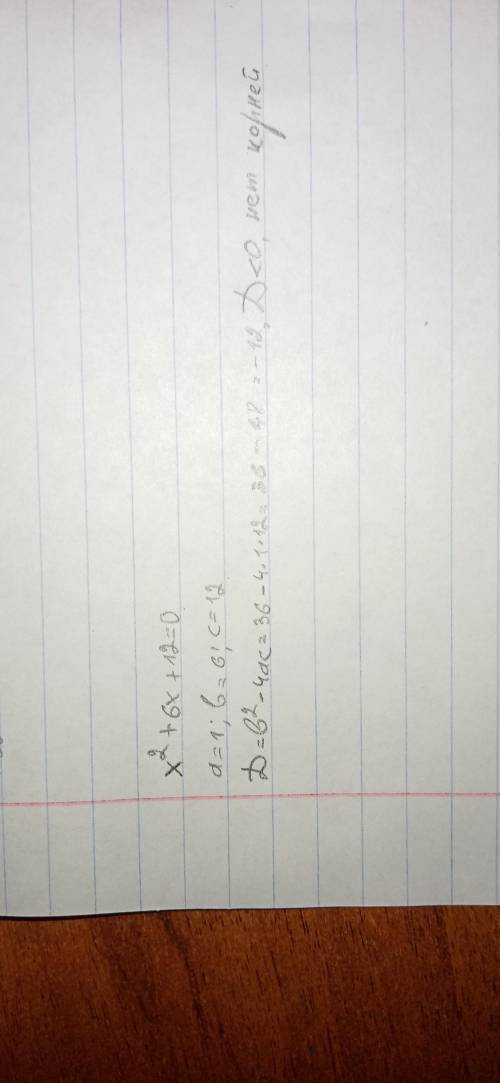 x² + 6x + 12 = 0
a = 1; b = 6; c = 12
D = b² - 4ac = 36 - 4·1·12 = 36 - 48 = -12, D < 0, нет корней